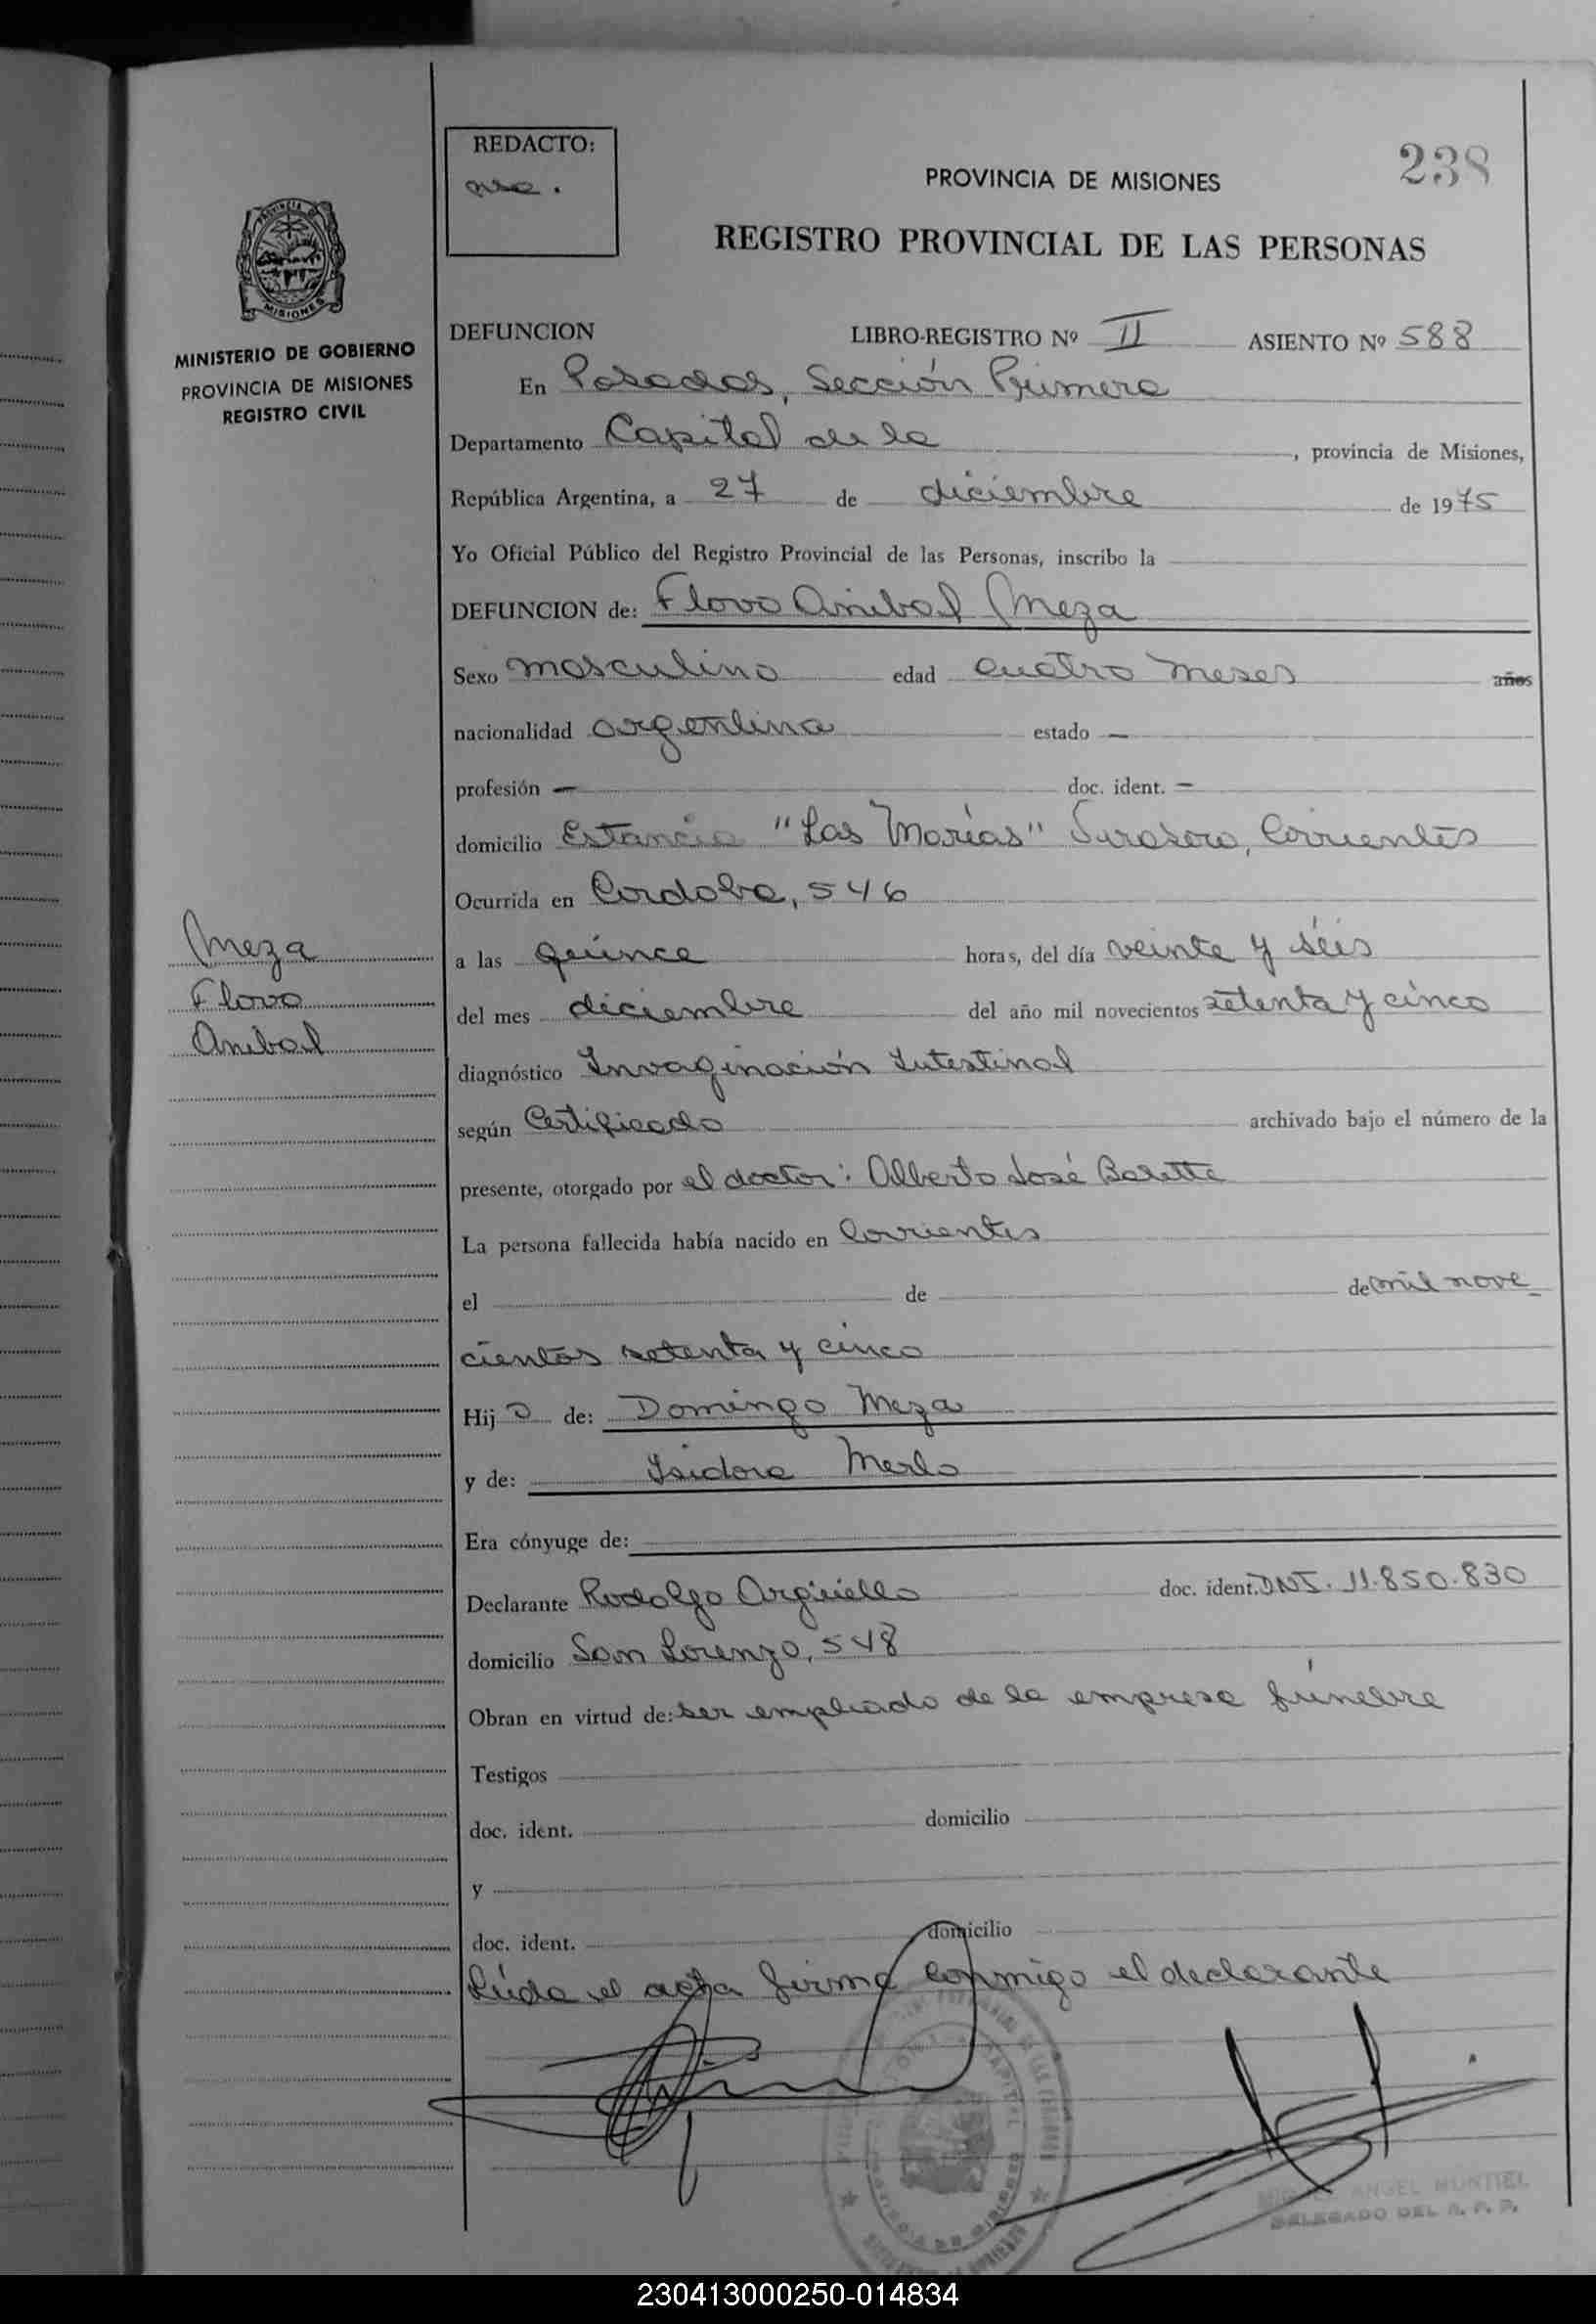 238
REDACTO:
PROVINCIA DE MISIONES
REGISTRO PROVINCIAL DE LAS PERSONAS
PROVINCIA DE
MISIONES
MINISTERIO DE GOBIERNO
PROVINCIA DE MISIONES
REGISTRO CIVIL
DEFUNCION LIBRO-REGISTRO Nº II ASIENTO Nº 588
En Posadas, Sección Primera
Departamento Capital de la , provincia de Misiones,
República Argentina, a 27 de diciembre de 1975
Yo Oficial Público del Registro Provincial de las Personas, inscribo la
DEFUNCION de: Flovo Anibal Meza
Sexo masculino edad cuatro meses años
nacionalidad argentina estado —
profesión — doc. ident. —
domicilio Estancia "Las Marías" Virasoro, Corrientes
Ocurrida en Cordoba, 546
a las quince horas, del día veinte y séis
del mes diciembre del año mil novecientos setenta y cinco
diagnóstico Invaginación Intestinal
según Certificado archivado bajo el número de la
presente, otorgado por el doctor: Alberto José
La persona fallecida había nacido en Corrientes
el de de mil nove_
cientos setenta y cinco
Hijo de: Domingo Meza
y de: Isidora Merlo
Era cónyuge de:
Declarante Rodolfo Argüello doc. ident. DNI. 11.850.830
domicilio San Lorenzo, 548
Obran en virtud de: ser empleado de la empresa fúnebre
Testigos
doc. ident. domicilio
y
doc. ident. domicilio
Leída el acta firma conmigo el declarante
Meza
Flovo
Anibal
MIGUEL ANGEL MONTIEL
DELEGADO DEL R. P. P.
230413000250-014834